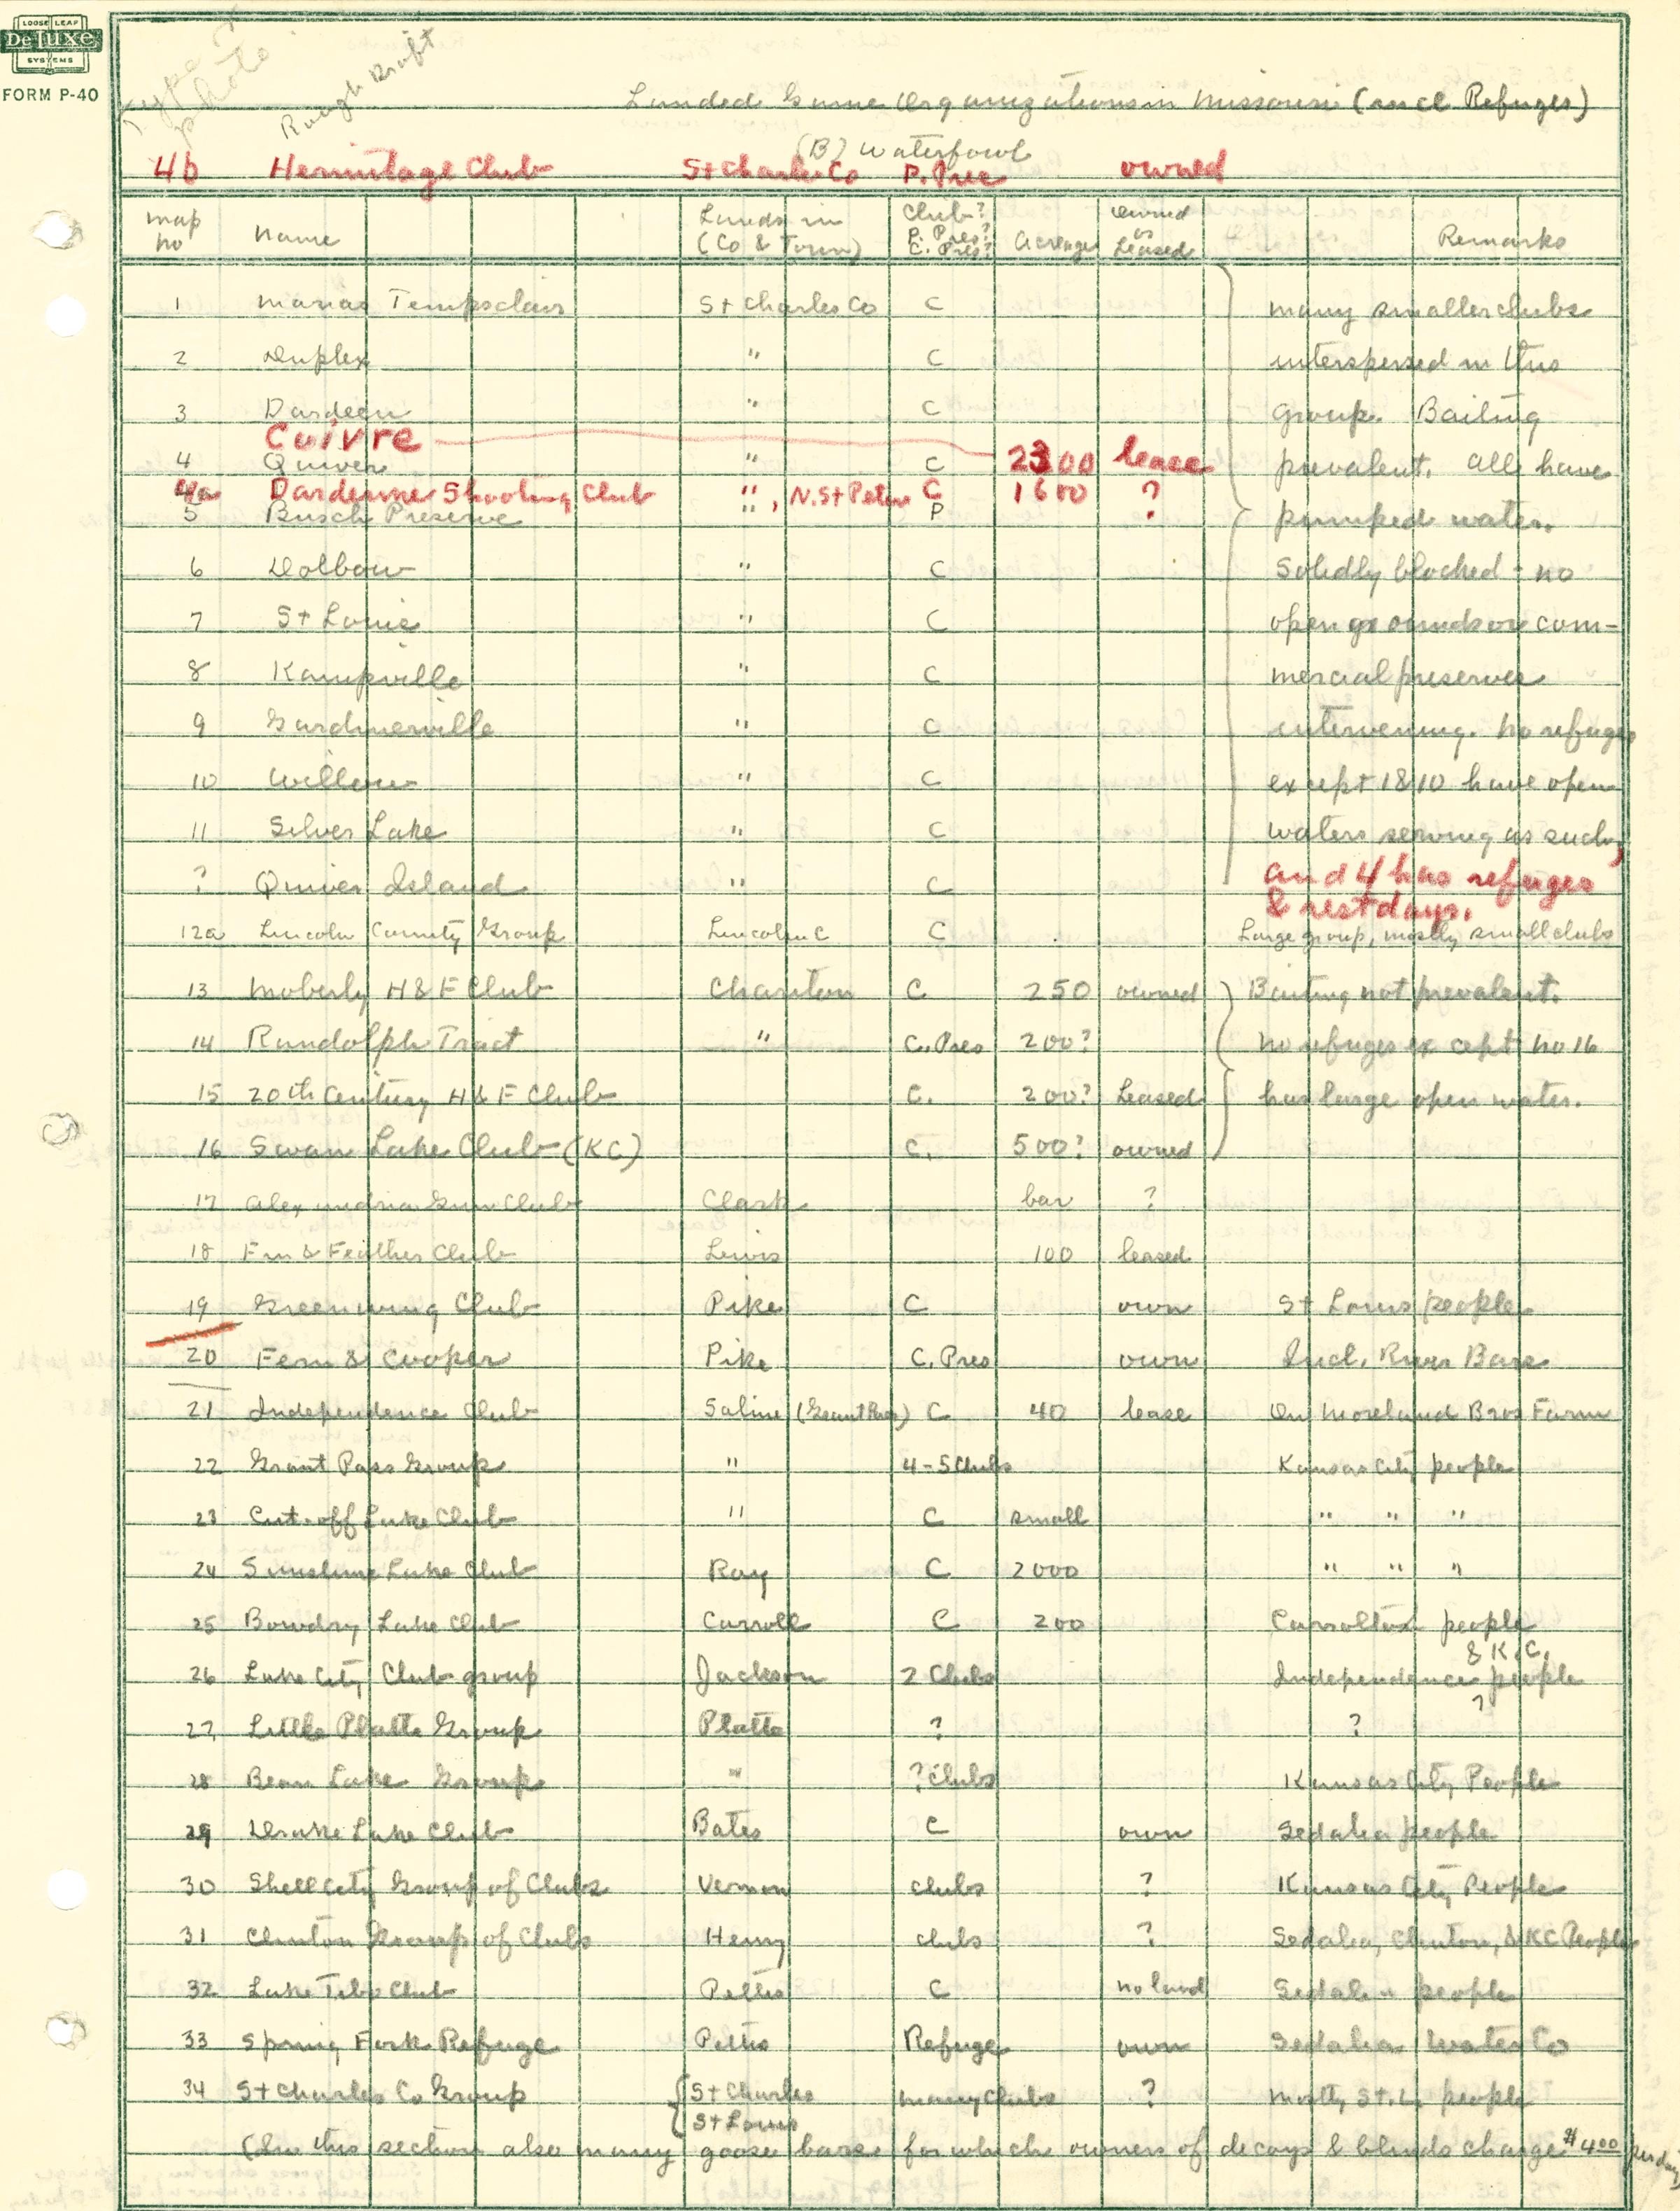 LOOSE LEAF
DeLuxe
SYSTEMS
FORM P-40
Type
photo
Rough Draft
Landed Game Organizations in Missouri (and Refuges)
(B) Waterfowl
4b Hermitage Club St Charles Co P. Pres owned
map no Name Lands in (Co & Town) Club? P. Pres? C. Pres? Acreage Owned or Leased Remarks
1 Marias Tempsclair St Charles Co C many smaller clubs
2 Duplex " C interspersed in this
3 Dardeen " C group. Baiting
Cuivre
4 Quiver " C 2300 lease prevalent. All have
4a Dardenne Shooting Club ", N. St Peters C 1600 ?
5 Busch Preserve " P ? pumped water.
6 Dolbow " C Solidly blocked - no
7 St Louis " C open grounds or com-
8 Kampville " C mercial preserves
9 Gardnerville " C intervening. No refuges
10 Willow " C except 1&10 have open
11 Silver Lake " C waters serving as such,
? Quiver Island " C and 4 has refuges
& rest days.
12a Lincoln County Group Lincoln C C Large group, mostly small clubs
13 Moberly H & F Club Chariton C. 250 owned Baiting not prevalent.
14 Randolph Tract " C. Pres 200? No refuges except no 16
15 20th Century H & F Club C. 200? Leased has large open water.
16 Swan Lake Club (KC) C. 500? owned
17 Alexandria Gun Club Clark bar ?
18 Fin & Feather Club Lewis 100 leased
19 Greenwing Club Pike C own St Louis people
20 Fern & Cooper Pike C. Pres own Incl. River Bars
21 Independence Club Saline (Grant Pass) C 40 lease On Moreland Bros Farm
22 Grant Pass Group " 4-5 Clubs Kansas City people
23 Cut-off Lake Club " C small " " "
24 Sunshine Lake Club Ray C 2000 " " "
25 Bowdry Lake Club Carroll C 200 Carrolton people
& K.C.
26 Lake City Club group Jackson 2 Clubs Independence people
?
27 Little Platte Group Platte ? ?
28 Bean Lake Group " ? Clubs Kansas City People
29 Drake Lake Club Bates C own Sedalia people
30 Shell City Group of Clubs Vernon clubs ? Kansas City People
31 Clinton Group of Clubs Henry clubs ? Sedalia, Clinton, & KC People
32 Lake Tebo Club Pettis C no land Sedalia people
33 Spring Fork Refuge Pettis Refuge own Sedalia Water Co
34 St Charles Co Group { St Charles many Clubs ? mostly St. L. people
St Louis
(In this section also many goose bars for which owners of decoys & blinds charge $4.00 per day